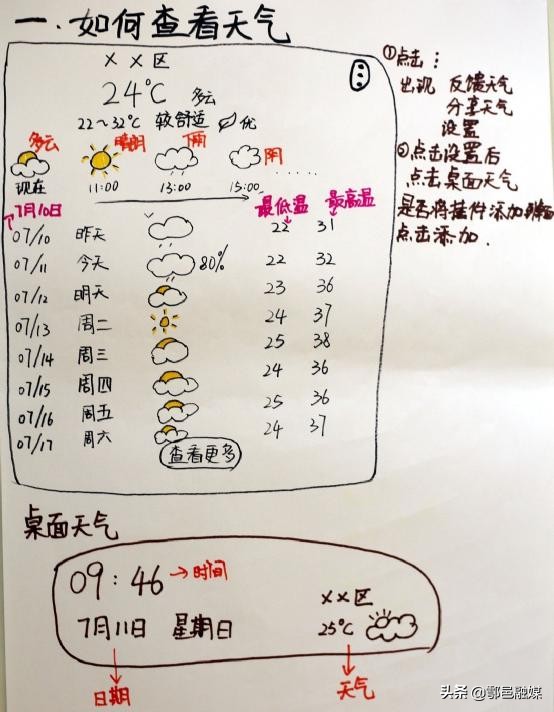 一.如何查看天气
××区
24℃ 多云
22~32℃ 较舒适 优
多云 晴朗 下雨 阴
现在 11:00 13:00 15:00
7月10日 最低温 最高温
07/10 昨天 22 31
07/11 今天 80% 22 32
07/12 明天 23 36
07/13 周二 24 37
07/14 周三 25 38
07/15 周四 24 36
07/16 周五 25 36
07/17 周六 24 37
查看更多
①点击:
出现 反馈天气
分享天气
设置
②点击设置后
点击桌面天气
是否将挂件添加到桌面
点击添加.
桌面天气
09:46 →时间
7月11日 星期日
××区
25℃
日期
天气
头条 @鄠邑融媒